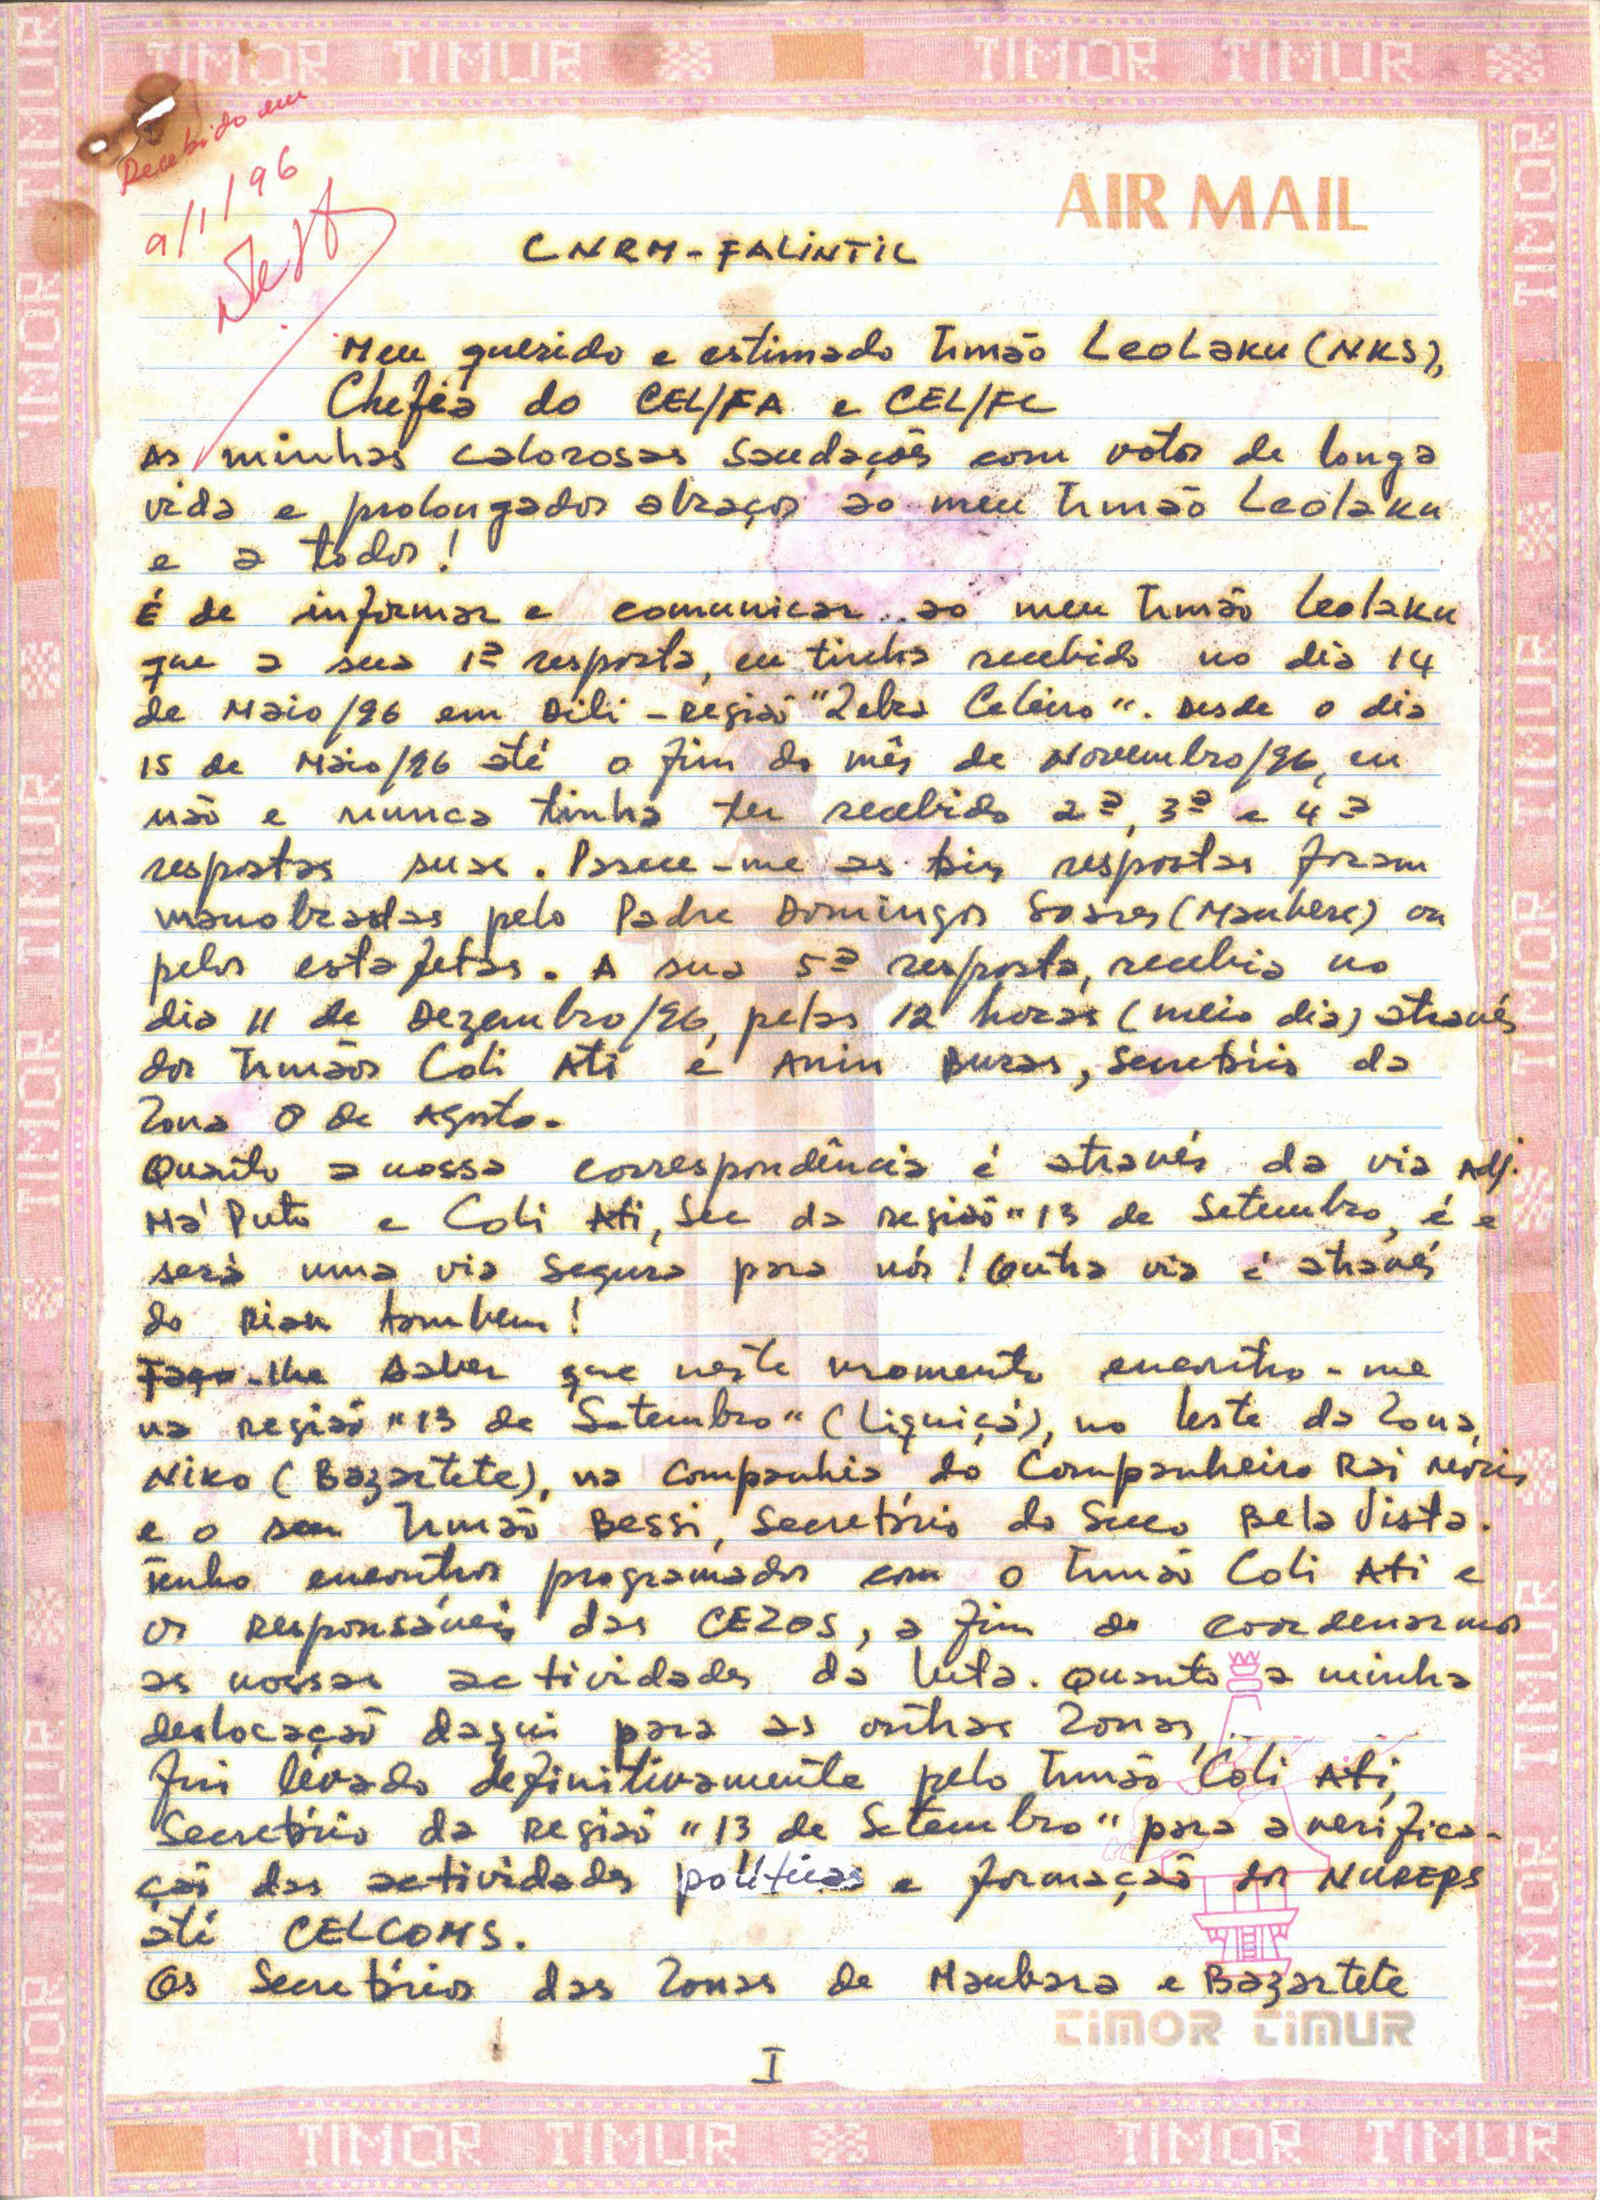 TIMOR TIMUR TIMOR TIMUR
Recebido em
9/1/96
AIR MAIL
CNRM-FALiNTiL
Meu querido e estimado Irmão Leolaku (NKS),
Chefia do CEL/FA e CEL/FC
As minhas calorosas Saudações com votos de longa
vida e prolongados abraços ao meu Irmão Leolaku
e a todos!
É de informar e comunicar ao meu Irmão Leolaku
que a sua 1ª resposta, eu tinha recebido no dia 14
de Maio/96 em Dili - Região "Zebra Celeiro". Desde o dia
15 de Maio/96 até o fim do mês de Novembro/96, eu
não e nunca tinha ter recebido 2ª, 3ª e 4ª
respostas suas. Parece-me as respostas foram
manobradas pelo Padre Domingos Soares (Maubere) ou
pelos estafetas. A sua 5ª resposta, recebia no
dia 11 de Dezembro/96, pelas 12 horas (meio dia) através
dos Irmãos Coli Ati e Anin Buras, Secretário da
Zona 8 de Agosto.
Quanto a nossa correspondência é através da via Adj.
Má Puto e Coli Ati, Sec da região "13 de Setembro, é e
será uma via Segura para nós! Outra via é através
do Rian tambem!
Faço-lhe Saber que neste momento encontro-me
na região "13 de Setembro" (Liquiçá), no leste da Zona,
Niko (Bazartete), na Companhia do Companheiro Rai
e o seu Irmão Bessi, Secretário do Suco Bela Vista.
Tenho encontros programados com o Irmão Coli Ati e
os Responsáveis das CEZOS, a fim de coordenarmos
as nossas actividades da luta. Quanto a minha
deslocação daqui para as outras Zonas,
fui levado definitivamente pelo Irmão Coli Ati,
Secretário da Região "13 de Setembro" para a verifica-
ção das actividades políticas e formação dos NUREPS
até CELCOMS.
Os Secretários das Zonas de Maubara e Bazartete
TiMOR TiMUR
I
TIMOR TIMUR TIMOR TIMUR